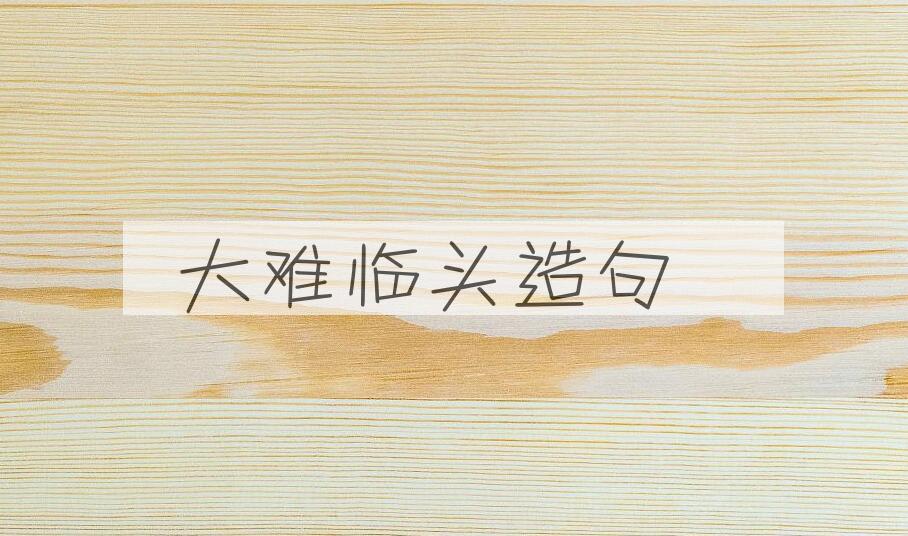 大难临头造句